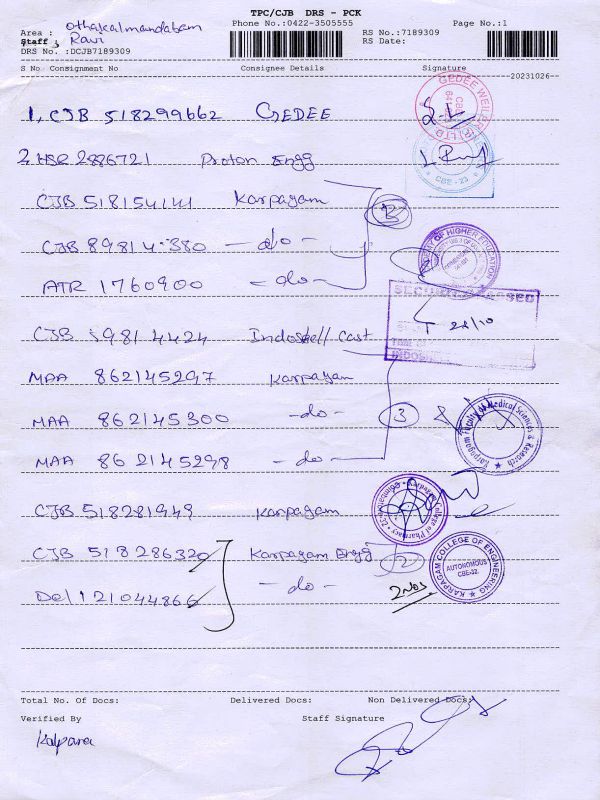 TPC/CJB DRS - PCK
Phone No.:0422-3505555 Page No.:1
Area : othakalmandabam
Staff : Ravi
RS No.:7189309
DRS No. :DCJB7189309
RS Date:
S No Consignment No Consignee Details Signature
20231026
1, CJB 518299662 GEDEE
2, HSR 2886721 Proton Engg
CJB 518154141 Karpagam
CJB 89814380 -do-
3
ATR 1760900 -do-
CJB 59814424 Indoshell Cast 22/10
MAA 862145297 Karpagam
MAA 862145300 -do- 3
MAA 862145298 -do-
CJB 518281949 Karpagam
CJB 518286320 Karpagam Engg 2
Del 121044866 -do- 2 Nos
GEDEE WEILER (P) LTD
CBE - 23
OF HIGHER EDUCATION
SECURITY PASSED
TIME
INDOSHELL
Karpagam Faculty of Medical Sciences & Research
Karpagam College of Pharmacy
KARPAGAM COLLEGE OF ENGINEERING
AUTONOMOUS
CBE-32.
Total No. Of Docs: Delivered Docs: Non Delivered Docs:
Verified By Staff Signature
Kalpana